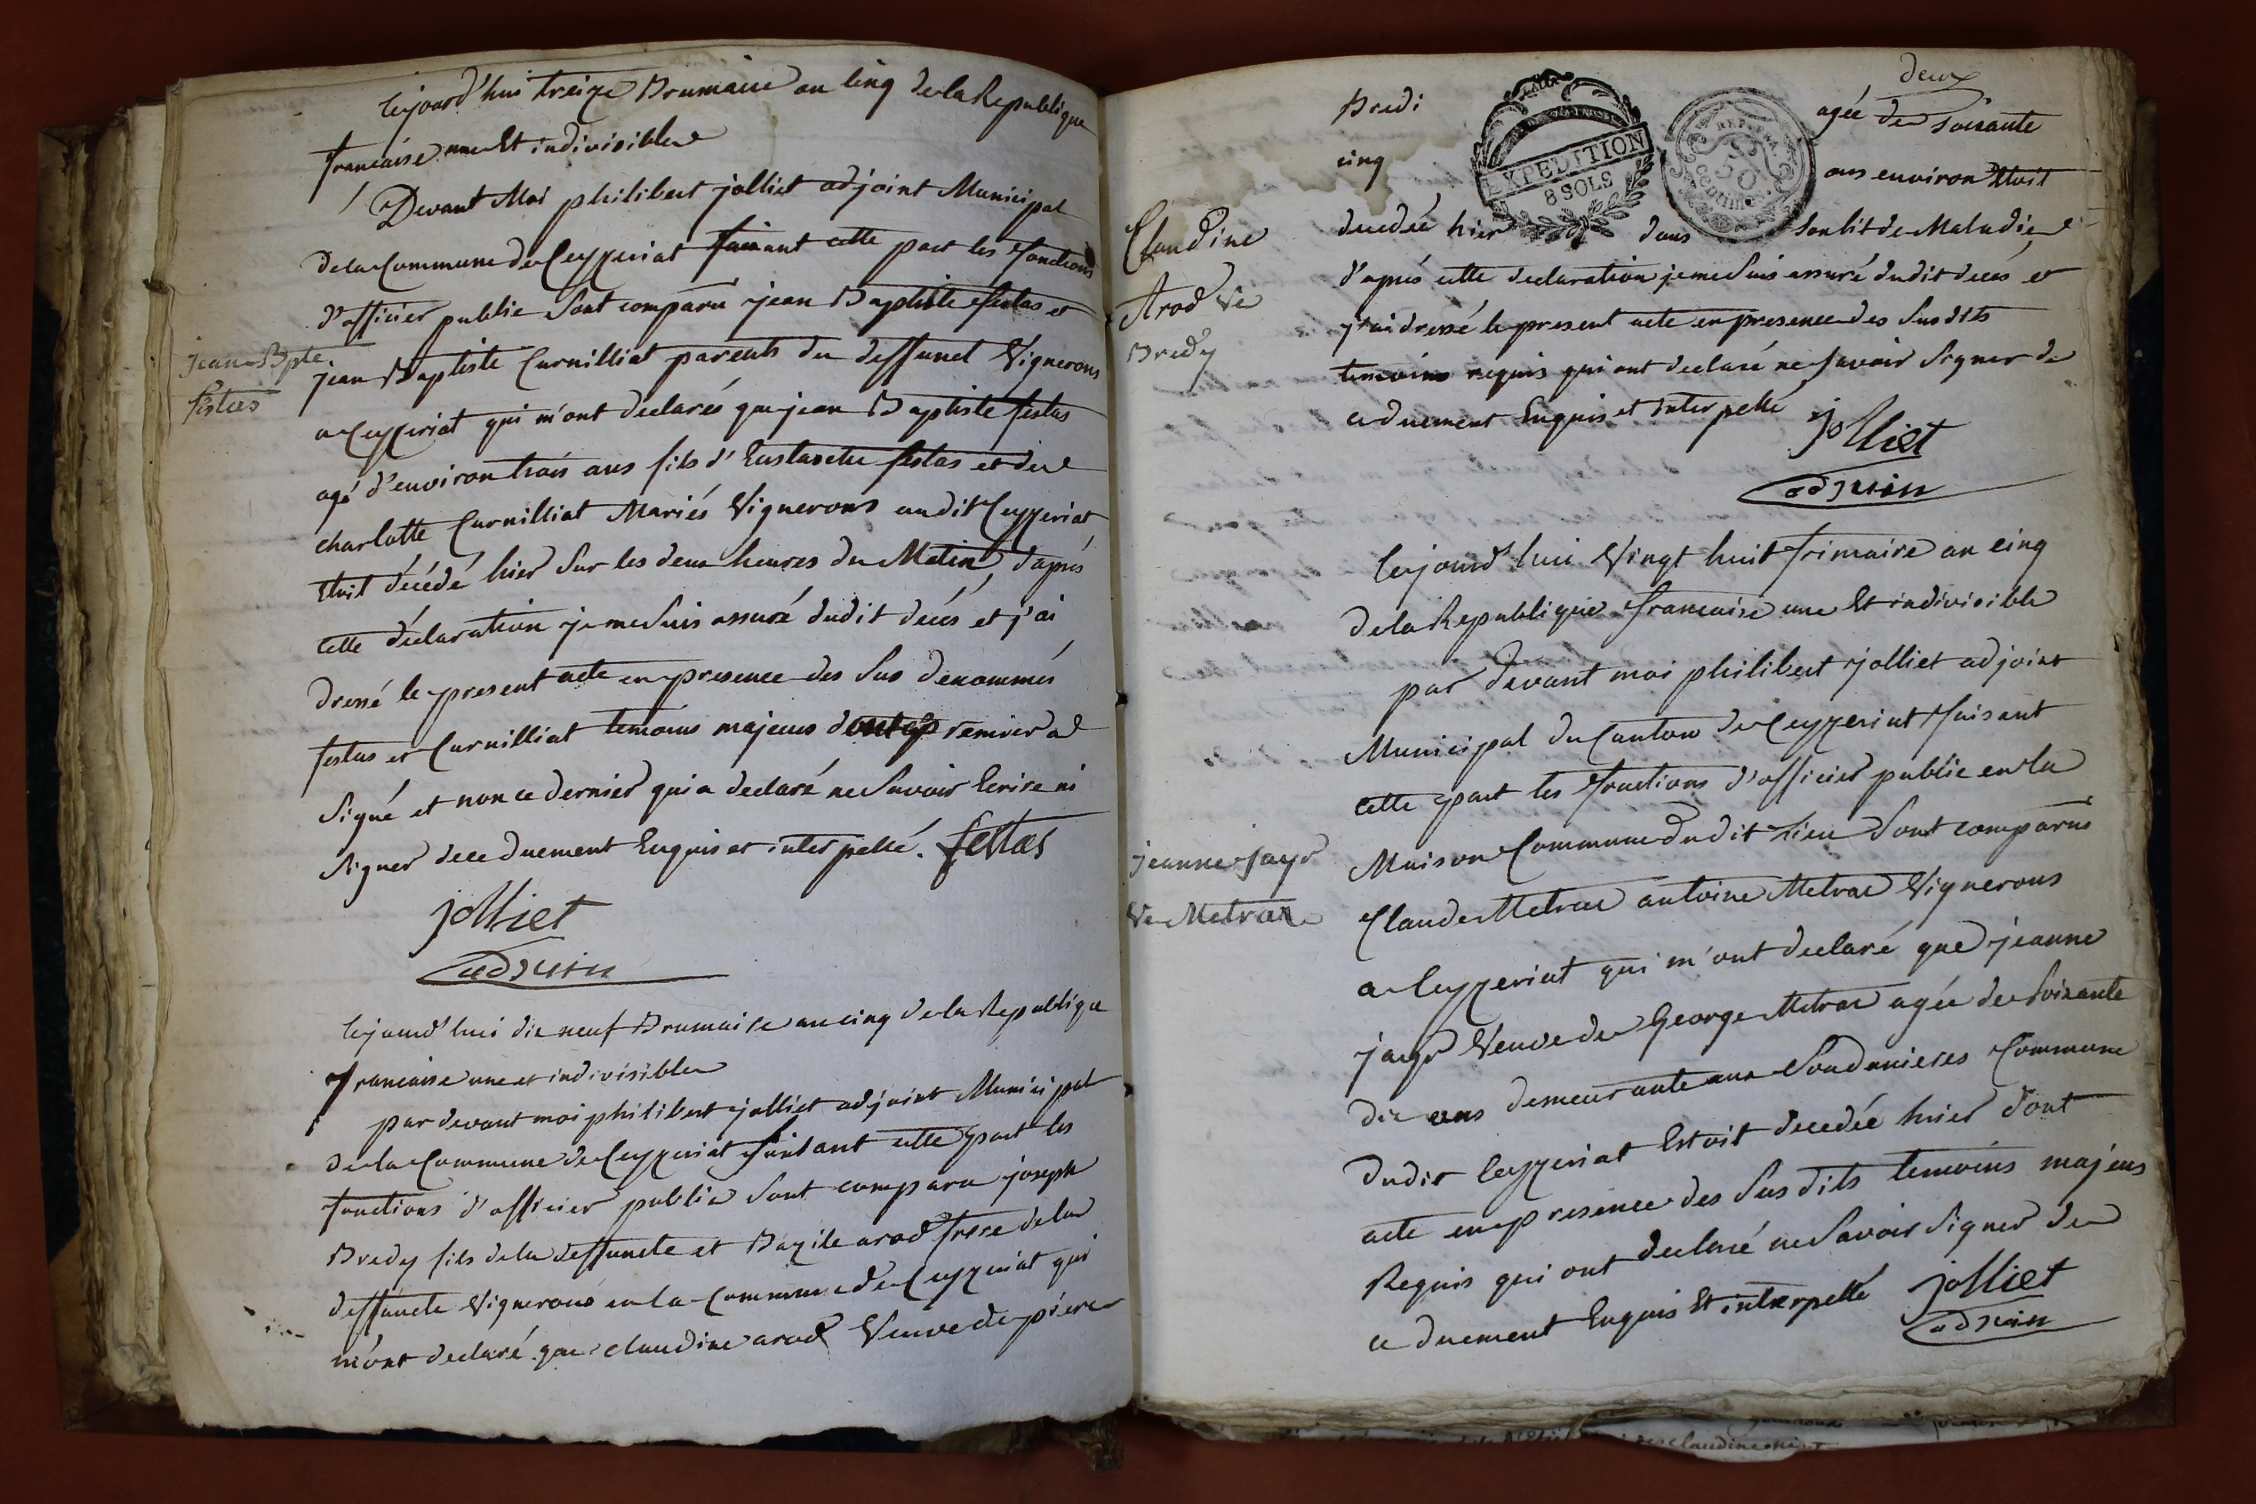 Cejourd'hui treize Brumaire an Cinq de la Republique
francaise une Et indivisible
Devant Moi philibert jolliet adjoint Municipal
de la Commune de Ceyzeriat faisant cette part les fonctions
d'officier public Sont comparu jean Baptiste festas et
jean Baptiste Curnilliat parents du deffunct Vignerons
a Ceyzeriat qui m'ont declarés que jean Baptiste festas
agé d'environ trois ans fils d'Eustache festas et de
charlotte Curnilliat Mariés Vignerons audit Ceyzeriat
Etoit décédé hier Sur les deux heures du Matin, d'aprés
cette déclaration je me Suis assuré dudit decés et j'ai
dressé le present acte en presence des Sus dénommés
festas et Curnilliat temoins majeurs dont le premier a
Signé et non ce dernier qui a declaré ne Savoir Ecrire ni
Signer de ce duement Enquis et interpellé. festas
jolliet
adjoin
jean Bpte
festas
Cejourd'hui dix neuf Brumaire an cinq de la Republique
francaise une et indivisible
par devant moi philibert jolliet adjoint Municipal
de la Commune de Ceyzeriat faisant cette part les
fonctions d'officier public Sont comparu joseph
Bredy fils de la deffuncte et Bazile arod frere de la
deffuncte Vignerons en la Commune de Ceyzeriat qui
m'ont declaré que claudine arod Veuve de pierre
deux
Bredi agée de soixante
cinq ans environ Etoit
decedée hier dans Son lit de Maladie
d'aprés cette declaration je me Suis assuré dudit decés et
j'ai dressé le present acte en presence des Susdits
temoins requis qui ont declaré ne Savoir Signer de
ce duement Enquis et interpellé jolliet
adjoin
EXPEDITION
8 SOLS
REP. FRA.
50
centimes
Claudine
Arod Ve
Bredy
Cejourd'hui Vingt huit frimaire an cinq
de la Republique francaise une Et indivisible
par devant moi philibert jolliet adjoint
Municipal du Canton de Ceyzeriat faisant
cette part les fonctions d'officier public en la
Maison Commune dudit Lieu Sont comparus
Claude Metras antoine Metras Vignerons
a Ceyzeriat qui m'ont declaré que jeanne
jayr Veuve de George Metras agée de Soixante
dix ans demeurante aux Soudanieres Commune
dudit Ceyzeriat Estoit decedée hier dont
acte en presence des Susdits temoins majeurs
Requis qui ont declaré ne Savoir Signer de
ce duement Enquis Et interpellé jolliet
adjoin
jeanne jayr
Ve Metras